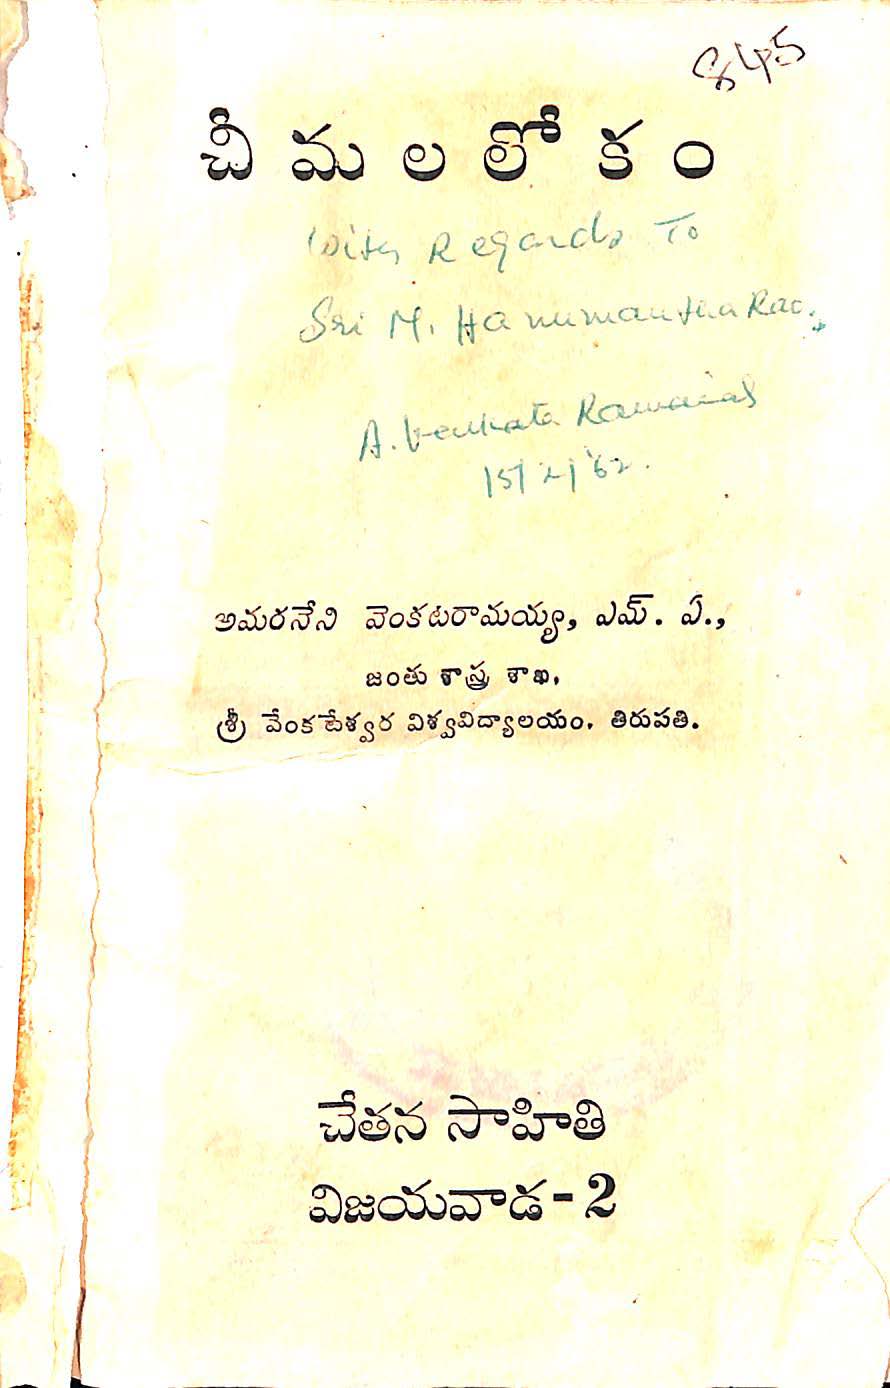 845
చీమలలోకం
With Regards To
Sri M. Hanumantha Rao.,
A. Venkata Ramaiah
15/2/'62.
అమరనేని వెంకటరామయ్య, ఎమ్. ఏ.,
జంతు శాస్త్ర శాఖ,
శ్రీ వేంకటేశ్వర విశ్వవిద్యాలయం. తిరుపతి.
చేతన సాహితి
విజయవాడ-2